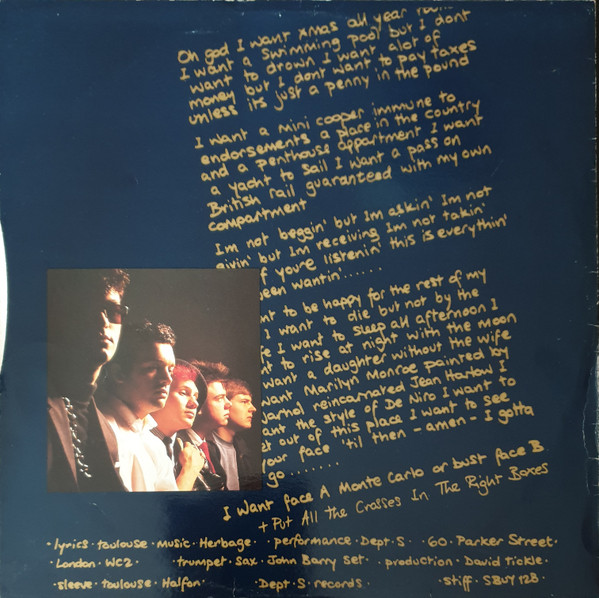 Oh god I want xmas all year
I want a swimming pool but I dont
want to drown I want alot of
money but I dont want to pay taxes
unless its just a penny in the pound
I want a mini cooper immune to
endorsements a place in the country
and a penthouse appartment I want
a yacht to sail I want a pass on
British rail guaranteed with my own
compartment
I'm not beggin' but Im askin' Im not
givin' but Im receiving Im not takin'
if youre listenin' this is everythin'
been wantin'......
to be happy for the rest of my
I want to die but not by the
I want to sleep all afternoon I
to rise at night with the moon
want a daughter without the wife
want Marilyn Monroe painted by
reincarnated Jean Harlow I
the style of De Niro I want to
out of this place I want to see
your face 'til then - amen - I gotta
go .......
I Want face A Monte Carlo or bust face B.
+ Put All the Crosses In The Right Boxes
·lyrics·toulouse·music·Herbage· ·performance·Dept·S· ·60·Parker Street·
·London·WC2· ·trumpet·sax·John Barry Set· ·production·David Tickle·
·sleeve·toulouse·Halfon· ·Dept·S·records· ·stiff·SBUY 128·